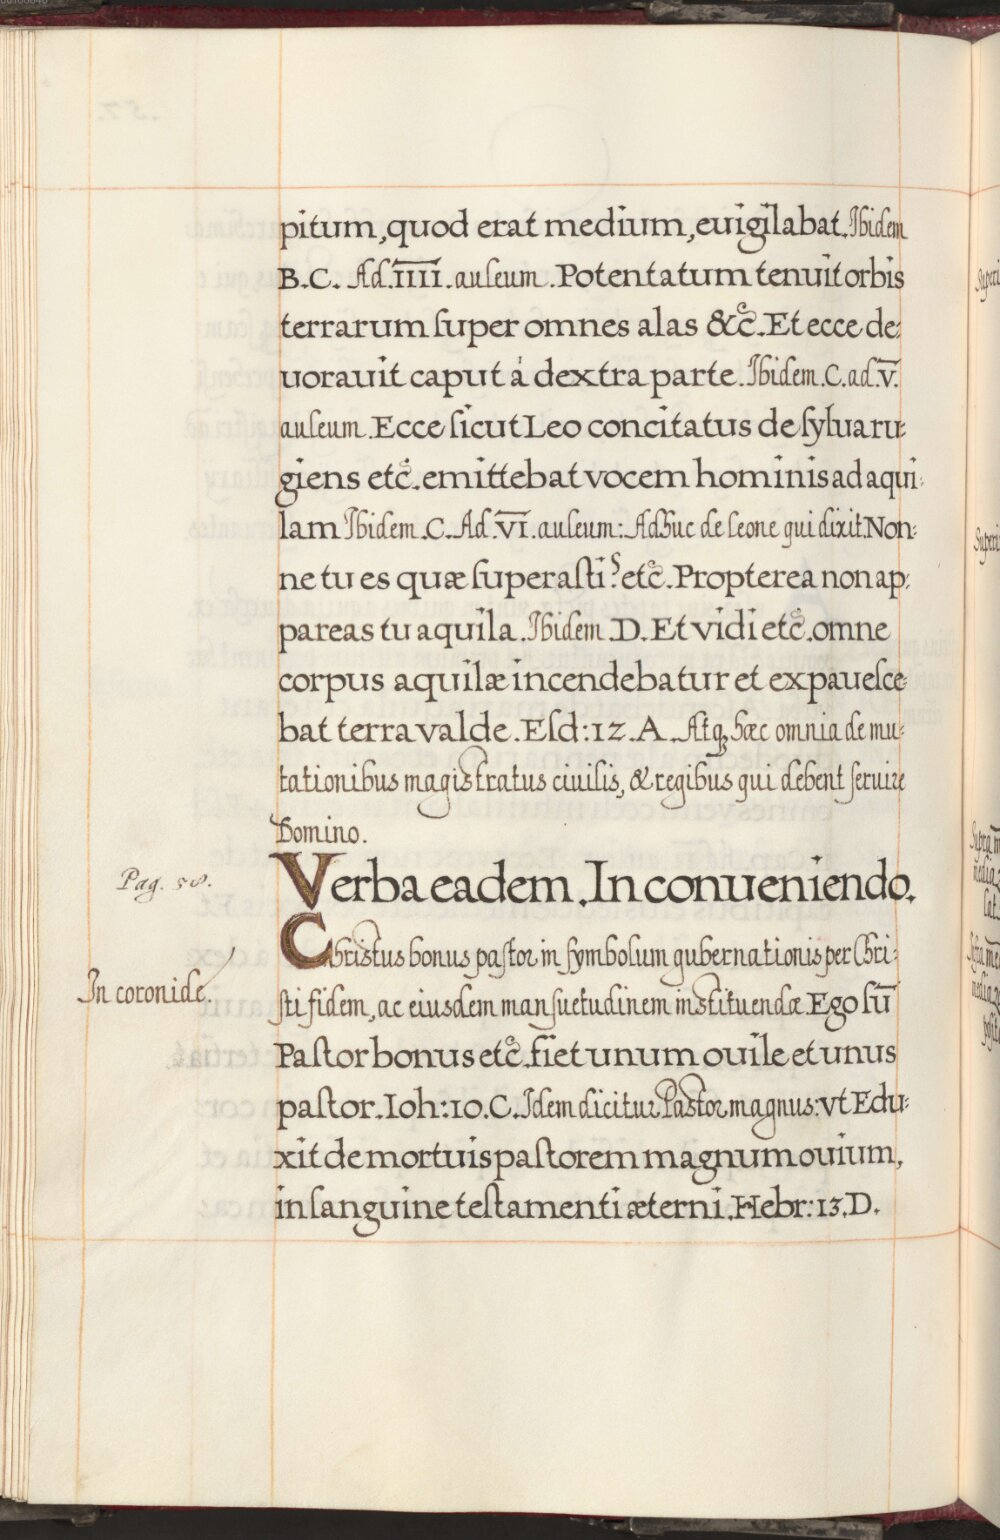 pitum, quod erat medium, euigilabat. Ibidem
B.C. Ad. IIII. auleum. Potentatum tenuit orbis
terrarum super omnes alas &c̄. Et ecce de:
uorauit caput á dextra parte. Ibidem. C. ad. V.
auleum. Ecce sicut Leo concitatus de sylua ru:
giens etc̄. emittebat vocem hominis ad aqui:
lam Ibidem. C. Ad. VI. auleum: Adhuc de leone qui dixit. Non:
ne tu es quæ superasti? etc̄. Propterea non ap:
pareas tu aquila. Ibidem D. Et vidi etc̄. omne
corpus aquilæ incendebatur et expauesce:
bat terra valde. Esd: 12. A. Atq; hæc omnia de mu:
tationibus magistratus ciuilis, & regibus qui debent seruire
Domino.
Pag. 58.
Verba eadem. In conueniendo.
Christus bonus pastor in symbolum gubernationis per Chri:
In coronide.
sti fidem, ac eiusdem mansuetudinem instituendæ. Ego sū
Pastor bonus etc̄. fiet unum ouile et unus
pastor. Ioh: 10. C. Idem dicitur Pastor magnus: vt Edu:
xit de mortuis pastorem magnum ouium,
in sanguine testamenti æterni. Hebr: 13. D.